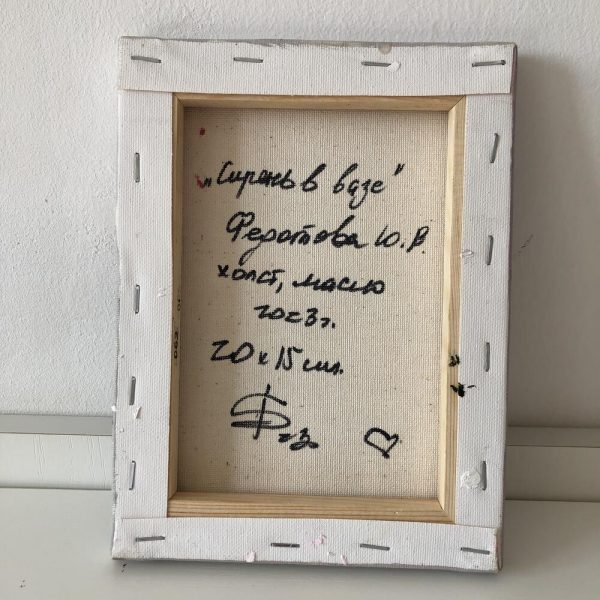 „Сирень в вазе"
Федотова Ю.В.
холст, масло
2023г.
20х15см.